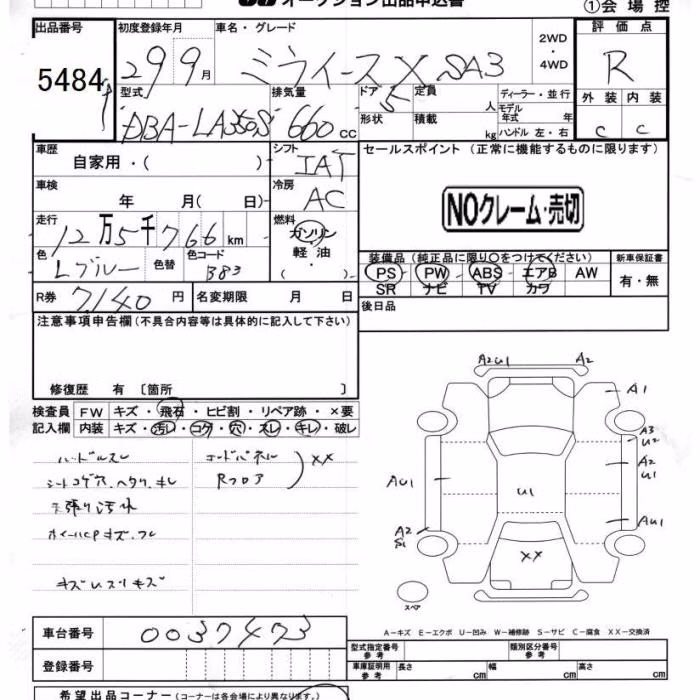 オークション出品申込書
①会場控
出品番号 初度登録年月 車名・グレード 評価点
5484 29 9月 ミライース X SA3 2WD・4WD R
型式 排気量 ドア 定員 ディーラー・並行 外装 内装
DBA-LA350S 660cc 5 人 モデル年式 年 C C
形状 積載 kg ハンドル 左・右
車歴 シフト セールスポイント(正常に機能するものに限ります)
自家用・( ) IAT
車検 冷房
年 月( 日) AC NOクレーム・売切
走行 燃料
12万5千766km ガソリン
軽油・( )
色 色替 色コード 装備品(純正品に限り○をつけてください) 新車保証書
Lブルー B83 PS PW ABS エアB AW 有・無
SR ナビ TV カワ
R券 7,140円 名変期限 月 日 後日品
注意事項申告欄(不具合内容等は具体的に記入して下さい)
修復歴 有 [箇所 ]
検査員 FW キズ・飛石・ヒビ割・リペア跡・×要
記入欄 内装 キズ・汚レ・コゲ・穴・スレ・キレ・破レ
ハンドルスレ
シートコゲ穴、ヘタリ、キレ
天張り汚れ
ホイールCPキズ、ワレ
キズ
Rフロア
XX
A2 U1 A2
A1
A3
U2
A2
U1
AU1
U1
AU1
A2
S1
XX
スペア
車台番号 0037473
A-キズ E-エクボ U-凹み W-補修跡 S-サビ C-腐食 XX-交換済
登録番号
型式指定番号 参考 類別区分番号 参考
車庫証明用 参考 長さ cm 幅 cm 高さ cm
希望出品コーナー(コーナーは各会場により異なります。)